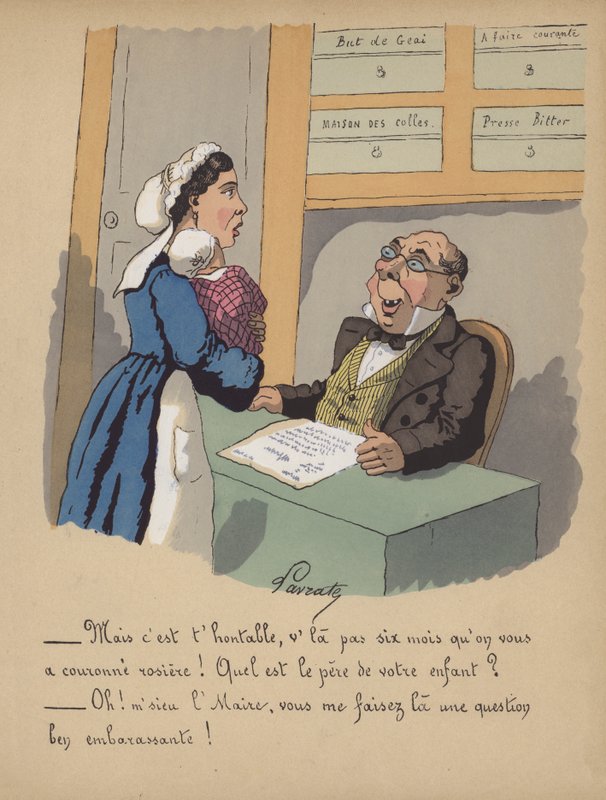 But de Geai
A faire courante
MAISON DES COLLES.
Presse Bitter
Lavrate
— Mais c'est t'hontable, v'là pas six mois qu'on vous
a couronné rosière ! Quel est le père de votre enfant ?
— Oh ! m'sieu l'Maire, vous me faisez là une question
ben embarassante !